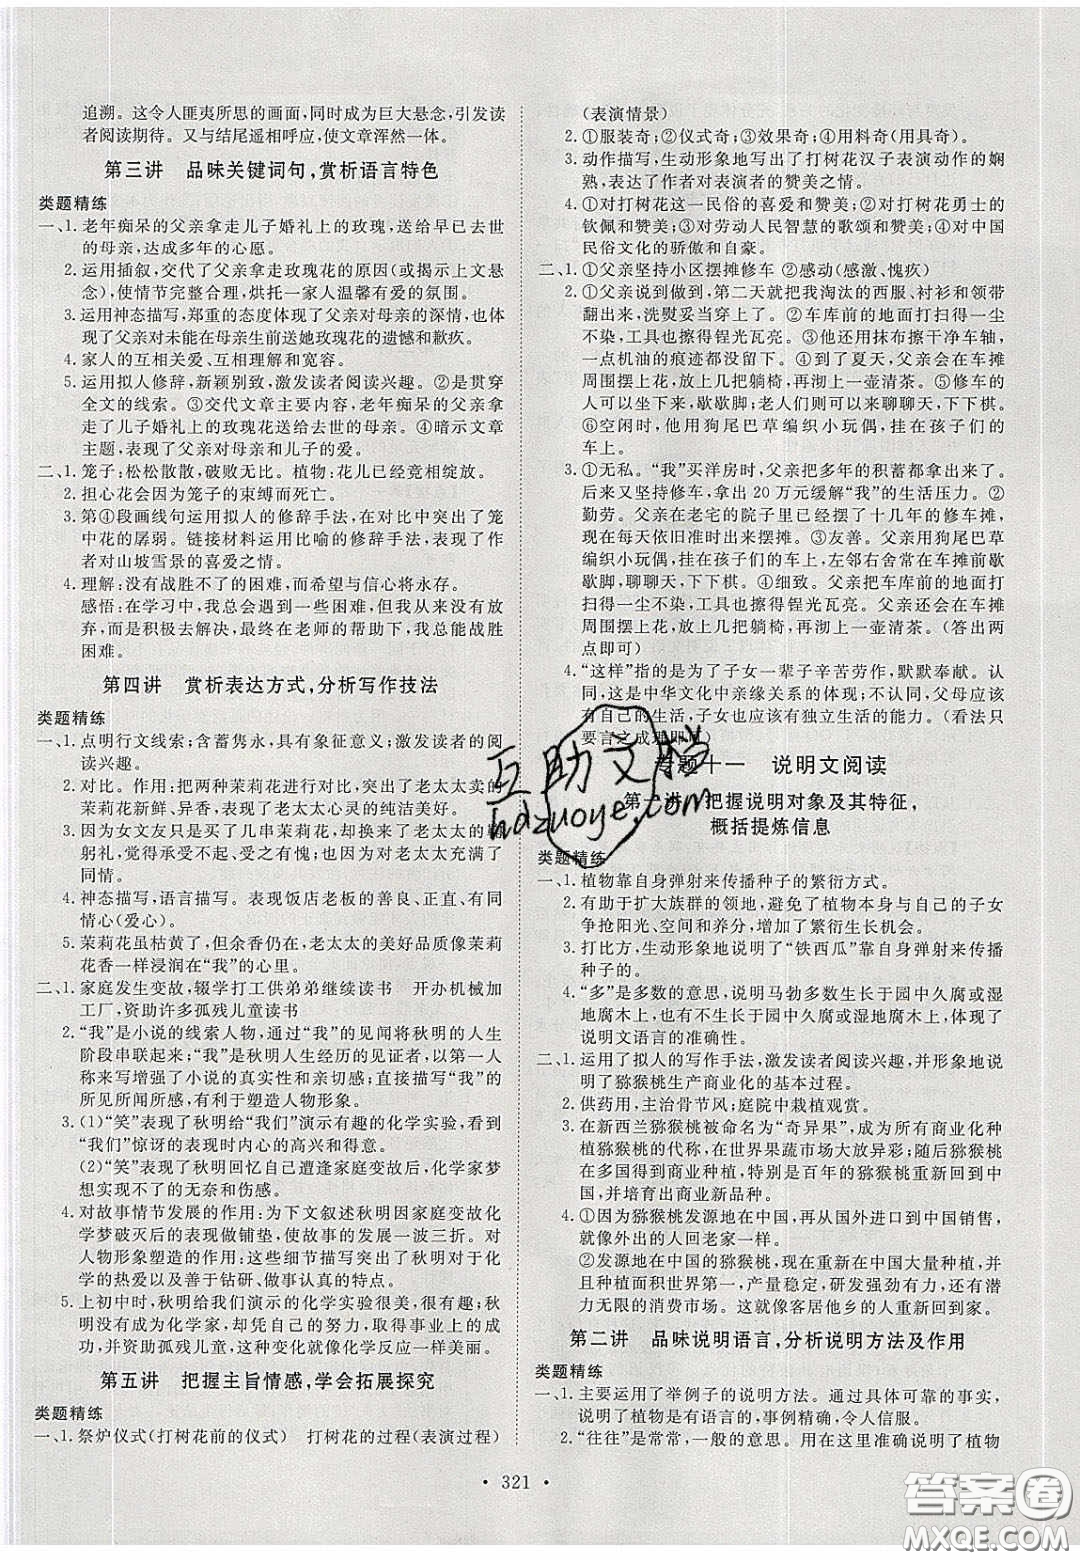 追溯。这令人匪夷所思的画面,同时成为巨大悬念,引发读
者阅读期待。又与结尾遥相呼应,使文章浑然一体。
第三讲 品味关键词句,赏析语言特色
类题精练
一、1. 老年痴呆的父亲拿走儿子婚礼上的玫瑰,送给早已去世
的母亲,达成多年的心愿。
2. 运用插叙,交代了父亲拿走玫瑰花的原因(或揭示上文悬
念),使情节完整合理,烘托一家人温馨有爱的氛围。
3. 运用神态描写,郑重的态度体现了父亲对母亲的深情,也体
现了父亲对未能在母亲生前送她玫瑰花的遗憾和歉疚。
4. 家人的互相关爱、互相理解和宽容。
5. 运用拟人修辞,新颖别致,激发读者阅读兴趣。②是贯穿
全文的线索。③交代文章主要内容,老年痴呆的父亲拿
走了儿子婚礼上的玫瑰花送给去世的母亲。④暗示文章
主题,表现了父亲对母亲和儿子的爱。
二、1. 笼子:松松散散,破败无比。植物:花儿已经竞相绽放。
2. 担心花会因为笼子的束缚而死亡。
3. 第④段画线句运用拟人的修辞手法,在对比中突出了笼
中花的孱弱。链接材料运用比喻的修辞手法,表现了作
者对山坡雪景的喜爱之情。
4. 理解:没有战胜不了的困难,而希望与信心将永存。
感悟:在学习中,我总会遇到一些困难,但我从来没有放
弃,而是积极去解决,最终在老师的帮助下,我总能战胜
困难。
第四讲 赏析表达方式,分析写作技法
类题精练
一、1. 点明行文线索;含蓄隽永,具有象征意义;激发读者的阅
读兴趣。
2. 对比。作用:把两种茉莉花进行对比,突出了老太太卖的
茉莉花新鲜、异香,表现了老太太心灵的纯洁美好。
3. 因为女文友只是买了几串茉莉花,得到了老太太的
躬礼,觉得承受不起,此时女文友对老太太充满了
同情。
4. 神态描写,语言描写。表现饭店老板的善良、正直、有同
情心(爱心)。
5. 茉莉花虽枯黄了,但余香仍在,老太太的美好品质像茉莉
花香一样浸润在“我”的心里。
二、1. 家庭发生变故,辍学打工供弟弟继续读书 开办机械加
工厂,资助许多孤残儿童读书
2. “我”是小说的线索人物,通过“我”的见闻将秋明的人生
阶段串联起来;“我”是秋明人生经历的见证者,以第一人
称来写增强了小说的真实性和亲切感;直接描写“我”的
所见所闻所感,有利于塑造人物形象。
3. (1)“笑”表现了秋明给“我们”演示有趣的化学实验,看到
“我们”惊讶的表现时内心的高兴和得意。
(2)“笑”表现了秋明回忆自己曾遭逢家庭变故时,化学家
梦想不得实现的无奈和伤感。
4. 对故事情节发展的作用:为下文叙述秋明因家庭变故化
学梦破灭后的表现做铺垫,使故事的发展一波三折。对
人物形象塑造的作用:这些细节描写突出了秋明对化
学的热爱以及善于钻研、做事认真的特点。
5. 上初中时,秋明给我们演示的化学实验很美,很有趣。秋
明虽没有成为化学家,但他凭借自己的聪明才智和努力,
取得事业成功,资助孤残儿童,这就像化学反应一样美丽。
第五讲 把握主旨情感,学会拓展探究
类题精练
一、1. 祭炉仪式(打树花前的仪式) 打树花的过程(表演过程)
(表演情景)
2. ①服装奇;②仪式奇;③效果奇;④用料奇(用具奇)。
3. 动作描写,生动形象地写出了打树花汉子表演动作的娴
熟,表达了作者对表演者的赞美之情。
4. ①对打树花这一民俗的喜爱和赞美;②对打树花勇士的
钦佩和赞美;③对劳动人民智慧的歌颂和赞美;④对中国
民俗文化的骄傲和自豪。
二、1. ①父亲坚持小区摆摊修车 ②感动(感激、愧疚)
2. ①父亲说到做到,第二天就把我淘汰的西服、衬衫和领带
翻出来,洗熨妥当穿上了。②车库前的地面打扫得一尘
不染,工具也擦得锃光瓦亮。③他还用抹布擦干净车轴,
一点机油的痕迹都不留下。④到了夏天,父亲会在车摊
周围摆上花,放上几把躺椅,再沏上一壶清茶。⑤修车的
人可以坐坐,歇歇脚;老人们则可以来聊聊天,下下棋。
⑥空闲时,他用狗尾巴草编织小玩偶,挂在孩子们的
车上。
3. ①无私。“我”买洋房时,父亲把多年的积蓄都给了“我”。
后来又小区摆摊修车,拿出20万元缓解“我”的生活压力。②
勤劳。父亲在老宅的院子里已经摆了十几年的修车摊,
现在每天依旧准时出来摆摊。③友善。父亲用狗尾巴草
编织小玩偶,挂在孩子们的车上,左邻右舍常在车摊前歇
歇脚,聊聊天,下下棋。④细致。父亲把车库前的地面打
扫得一尘不染,工具也擦得锃光瓦亮。父亲还会在车摊
周围摆上花,放上几把躺椅,再沏上一壶清茶。(答出两
点即可)
4. “这样”指的是为了子女一辈子辛苦劳作,默默奉献。认
同,这是中华文化中亲缘关系的体现;不认同,父母应该
有自己的生活,子女也应该有独立生活的能力。(看法只
要言之成理即可)
专题十一 说明文阅读
第一讲 把握说明对象及其特征,
概括提炼信息
类题精练
一、1. 植物靠自身弹射来传播种子的繁衍方式。
2. 有助于扩大族群的领地,避免了植物本身与自己的子女
争抢阳光、空间和养分,增加了繁衍生长机会。
3. 打比方,生动形象地说明了“铁西瓜”靠自身弹射来传播
种子的。
4. “多”是多数的意思,说明马勃多数生长于园中久腐或湿
地腐木上,但不是全部生长于园中久腐或湿地腐木上,体现了
说明文语言的准确性。
二、1. 运用了拟人的写作手法,激发读者阅读兴趣,并形象地说
明了猕猴桃生产商业化的基本过程。
2. 供药用,主治骨节风;庭院中栽植观赏。
3. 在新西兰猕猴桃被命名为“奇异果”,成为所有商业化种
植猕猴桃的代称,在世界果蔬市场大放异彩;随后猕猴桃
在多国得到商业种植,特别是百年后的猕猴桃回到中
国,并培育出商业新品种。
4. ①因为猕猴桃发源地在中国,再从国外进口到中国销售,
就像外出的人回老家一样。
②发源地在中国的猕猴桃,现在重新在中国大量种植,并
且种植面积世界第一,产量稳定,研发强劲有力,还有潜
力无限的消费市场。这就像客居他乡的人重新回到家。
第二讲 品味说明语言,分析说明方法及作用
类题精练
一、1. 主要运用了举例子的说明方法。通过具体可靠的事实,
说明了植物是有语言的,事例精确,令人信服。
2. “往往”是常常,一般的意思。用在这里准确说明了植物
• 321 •
互助文档
hdzuoye.com
答案圈
MXQE.COM